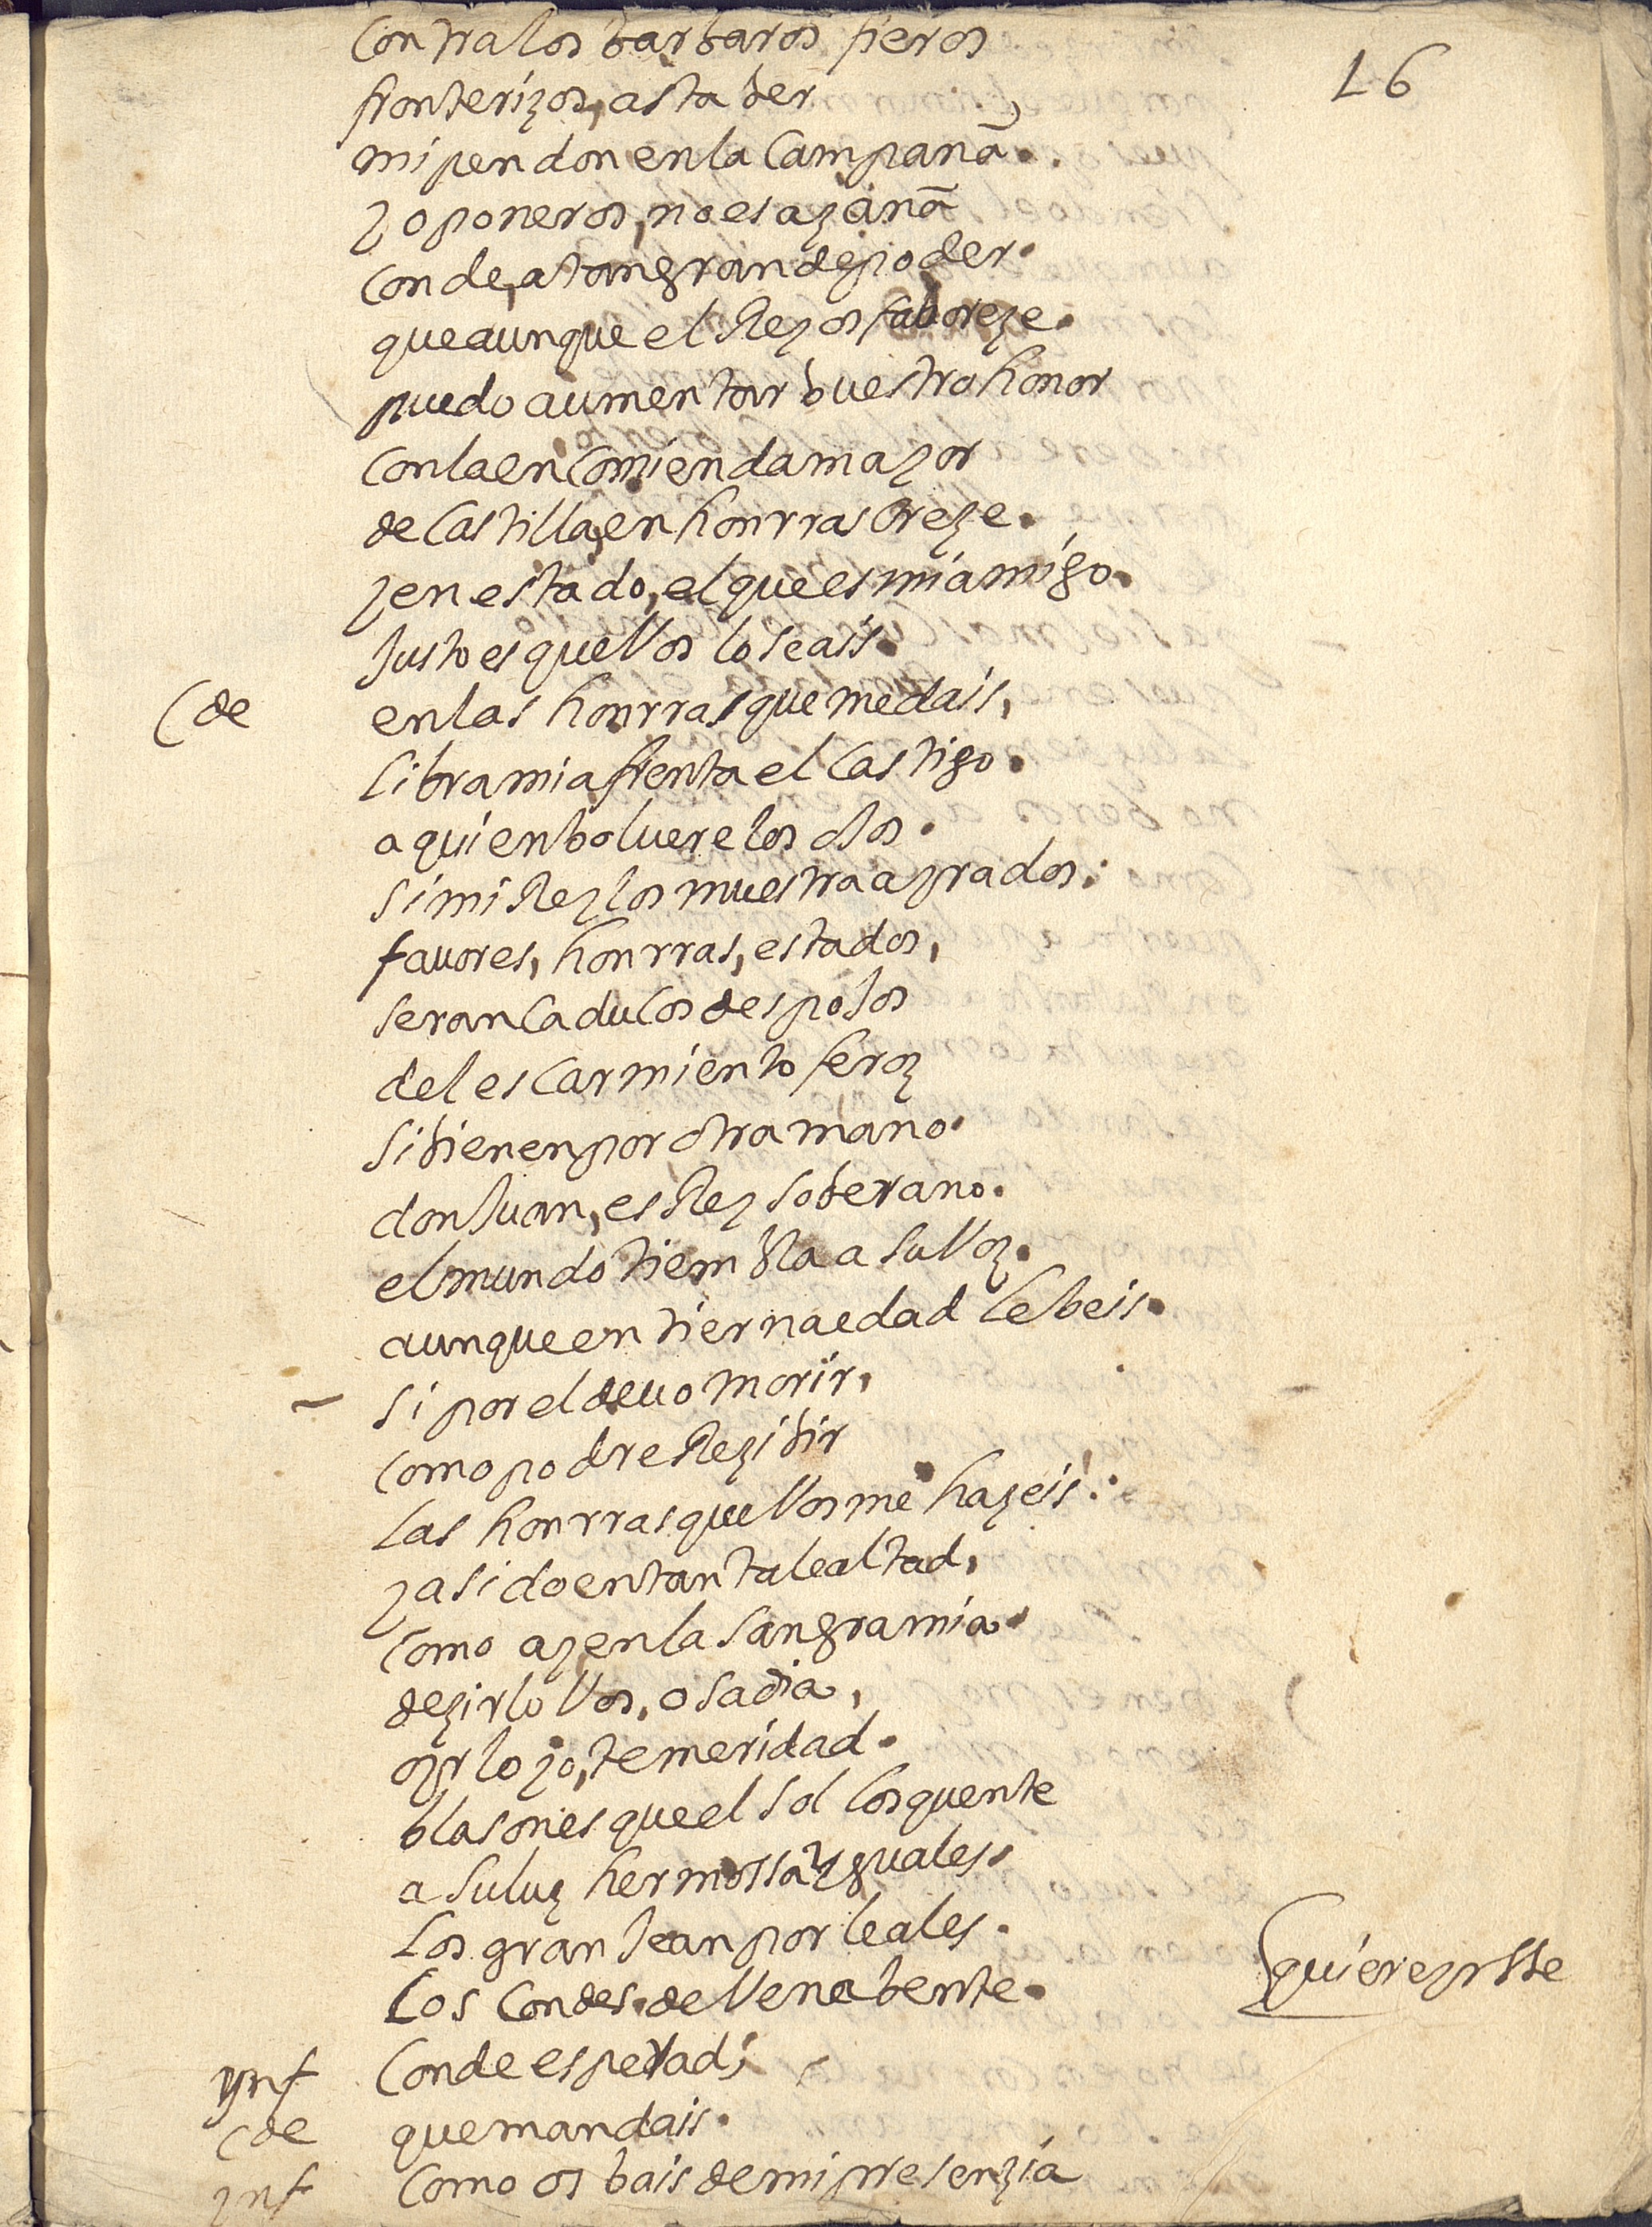 16
Contra los barbaros fieros
fronterizos, asta ber
mi pendon en la Campaña.
y oponeros, no es azaña
Conde, a tan grande poder.
que aunque el Rey os faboreze.
puedo aumentar buestro honor
Con la encomienda mayor
de Castilla, en honrras Creze.
y en estado, el que es mi amigo.
Justo es que Vos lo seais.
Cde en las honrras que me dais,
libra mi afrenta el Castigo.
a quien boluere los oJos.
si mi Rey los muestra ayrados.
fauores, honrras, estados,
seran Caducos despoJos
del esCarmiento feroz
si bienen por otra mano.
don Juan, es Rey soberano.
el mundo tiembla a su Voz.
aunque en tierna edad le beis.
si por el deuo morir,
Como podre Rezibir
las honrras que Vos me hazeis.
y a sido en tanta lealtad,
Como ay en la sangra mia.
dezirlo Vos, osadia,
oyrlo yo, temeridad.
blasones que el sol los quente
a su luz hermossa yguales.
los granJean por leales.
Los Condes de Venabente.
quiereyrsse
ynf Conde esperad;
Cde que mandais.
ynf Como os bais de mi presenzia